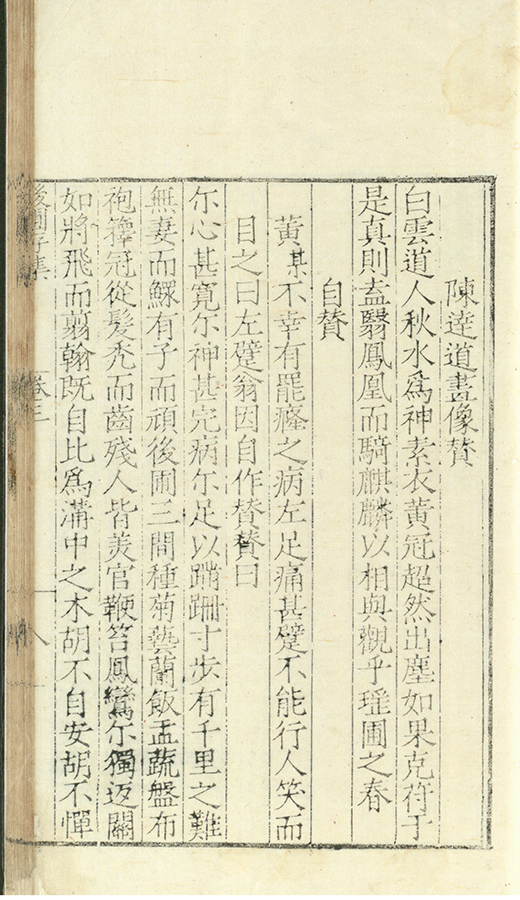 陳達道畫像贊
白雲道人秋水爲神素衣黃冠超然出塵如果克符于
是真則盍翳鳳凰而騎麒麟以相與觀乎瑶圃之春
自贊
黃某不幸有罷癃之病左足痛甚躄不能行人笑而
目之曰左躄翁因自作贊贊曰
尓心甚寬尓神甚完病尓足以蹣跚寸步有千里之難
無妻而鰥有子而頑後圃三間種菊藝蘭飯盂蔬盤布
袍籜冠從髮禿而齒殘人皆羨官鞭笞鳳鸞尓獨迈關
如將飛而翦翰旣自比爲溝中之木胡不自安胡不憚
後圃存集
卷三
八